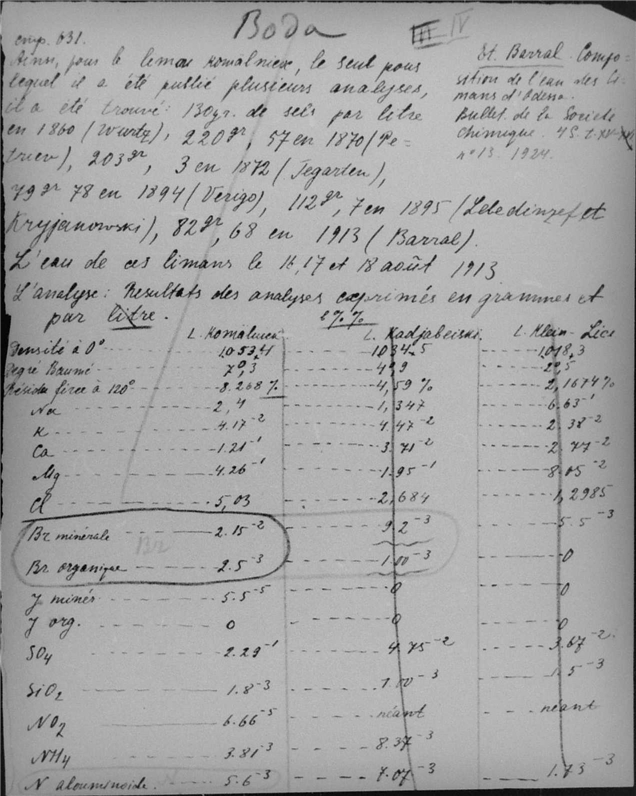 Вода
III IV
стр. 631.
Ainsi, pour le liman Komalnick, le seul pour
lequel il a été publié plusieurs analyses,
il a été trouvé: 130gr. de sels par litre
en 1860 (Wurtz), 220gr, 57 en 1870 (Pe-
triew), 203gr, 3 en 1872 (Tegarten),
79gr 78 en 1894 (Verigo), 112gr, 7 en 1895 (Lebedinzef et
Kryjanowski), 82gr, 68 en 1913 (Barral).
Et. Barral. Compo-
sition de l'eau des li-
mans d'Odena.
Bullet. de la Societe
chimique. 4S. t.
n°13. 1924.
L'eau de ces limans le 16, 17 et 18 août 1913
L'analyse: Resultats des analyses exprimés en grammes et
par litre. %%
L. Komalnick L. Kadjabeiski. L. Klein-Lice
Densité à 0° 1053,1 1034,5 1018,3
Degré Baumé 7°,3 4°,9 2°,5
Résidu fixe à 120° 8.268% 4,59% 2,1674%
Na 2,4 1,347 6.63⁻¹
K 4.17⁻² 4.47⁻² 2.38⁻²
Ca 1.21⁻¹ 3.71⁻² 2.77⁻²
Mg 4.26⁻¹ 1.95⁻¹ 8.05⁻²
Cl 5,03 2,684 1,2985
Br minérale 2.15⁻² 9.2⁻³ 5.5⁻³
Br
Br organique 2.5⁻³ 1.00⁻³ 0
J minér 5.5⁻⁵ 0 0
J org. 0 0 0
SO4 2.29⁻¹ 4.75⁻² 3.67⁻²
SiO2 1.8⁻³ 1.10⁻³ 1.5⁻³
NO2 6.66⁻⁵ néant néant
NH4 3.81⁻³ 8.37⁻³
N alouminoide. 5.6⁻³ 7.07⁻³ 1.73⁻³